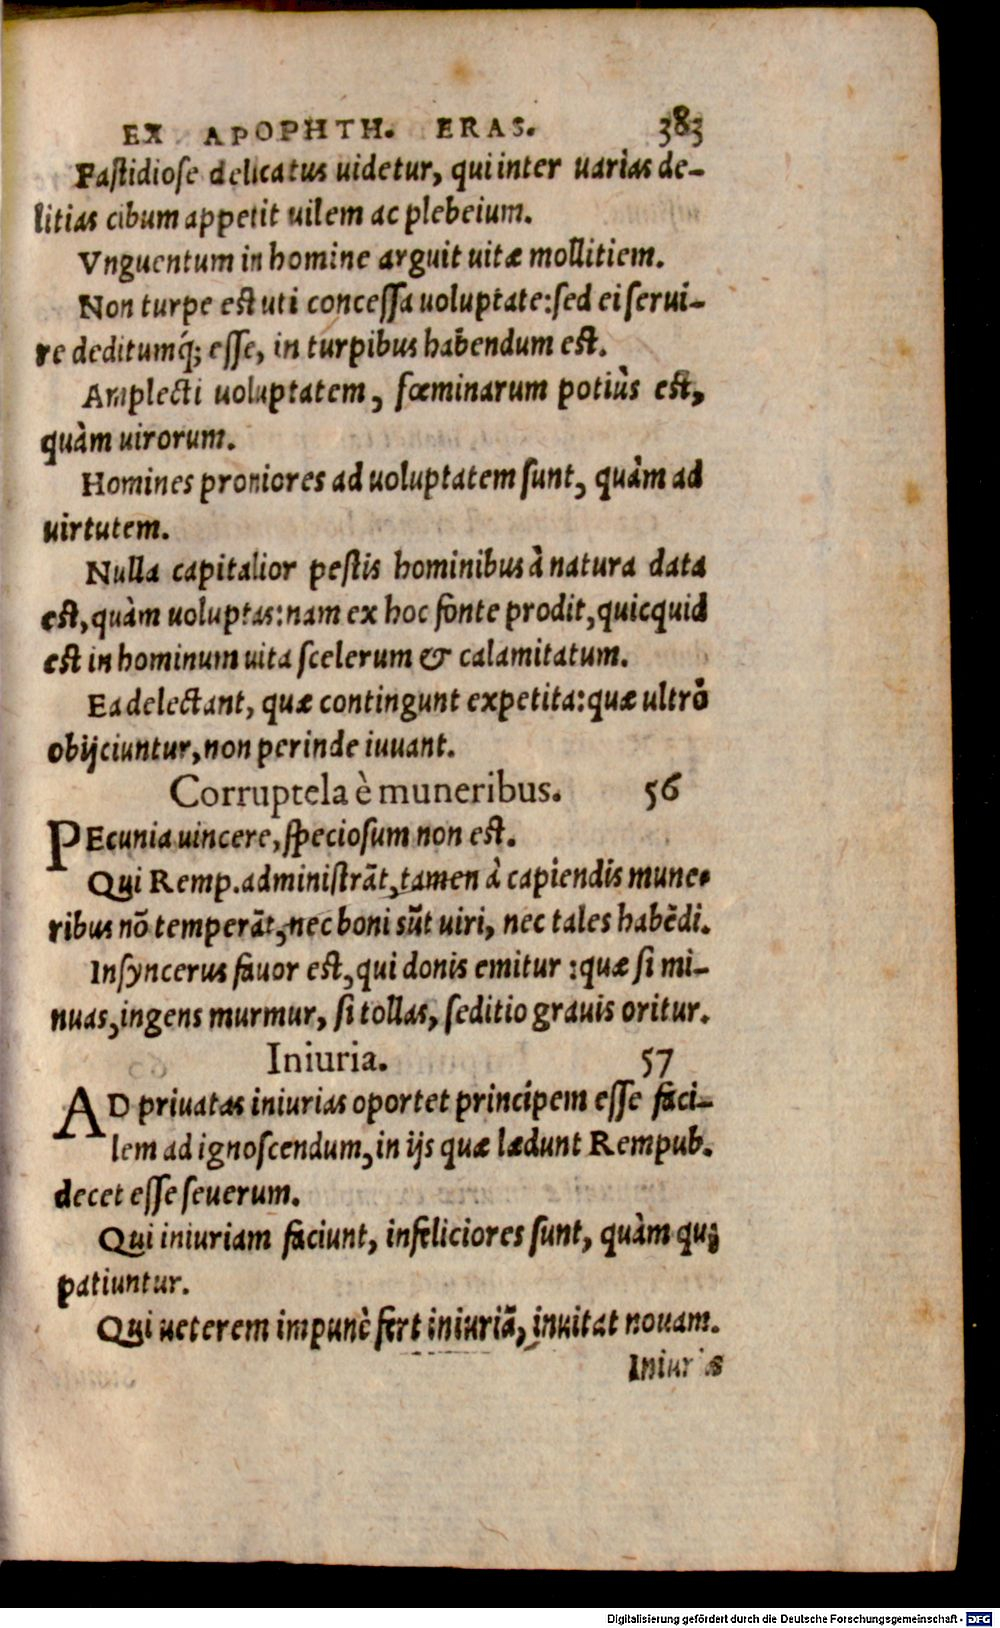 EX APOPHTH. ERAS. 383
Fastidiose delicatus uidetur, qui inter uarias de-
litias cibum appetit uilem ac plebeium.
Vnguentum in homine arguit uitæ mollitiem.
Non turpe est uti concessa uoluptate: sed ei serui-
re deditumq́; esse, in turpibus habendum est.
Amplecti uoluptatem, fœminarum potiùs est,
quàm uirorum.
Homines proniores ad uoluptatem sunt, quàm ad
uirtutem.
Nulla capitalior pestis hominibus à natura data
est, quàm uoluptas: nam ex hoc fonte prodit, quicquid
est in hominum uita scelerum & calamitatum.
Ea delectant, quæ contingunt expetita: quæ ultrò
obijciuntur, non perinde iuuant.
Corruptela è muneribus. 56
PEcunia uincere, speciosum non est.
Qui Remp. administrãt, tamen à capiendis mune-
ribus nõ temperãt, nec boni sũt uiri, nec tales habẽdi.
Insyncerus fauor est, qui donis emitur: quæ si mi-
nuas, ingens murmur, si tollas, seditio grauis oritur.
Iniuria. 57
AD priuatas iniurias oportet principem esse faci-
lem ad ignoscendum, in ijs quæ lædunt Rempub.
decet esse seuerum.
Qui iniuriam faciunt, infeliciores sunt, quàm qui
patiuntur.
Qui ueterem impunè fert iniuriã, inuitat nouam.
Iniurias
Digitalisierung gefördert durch die Deutsche Forschungsgemeinschaft - DFG